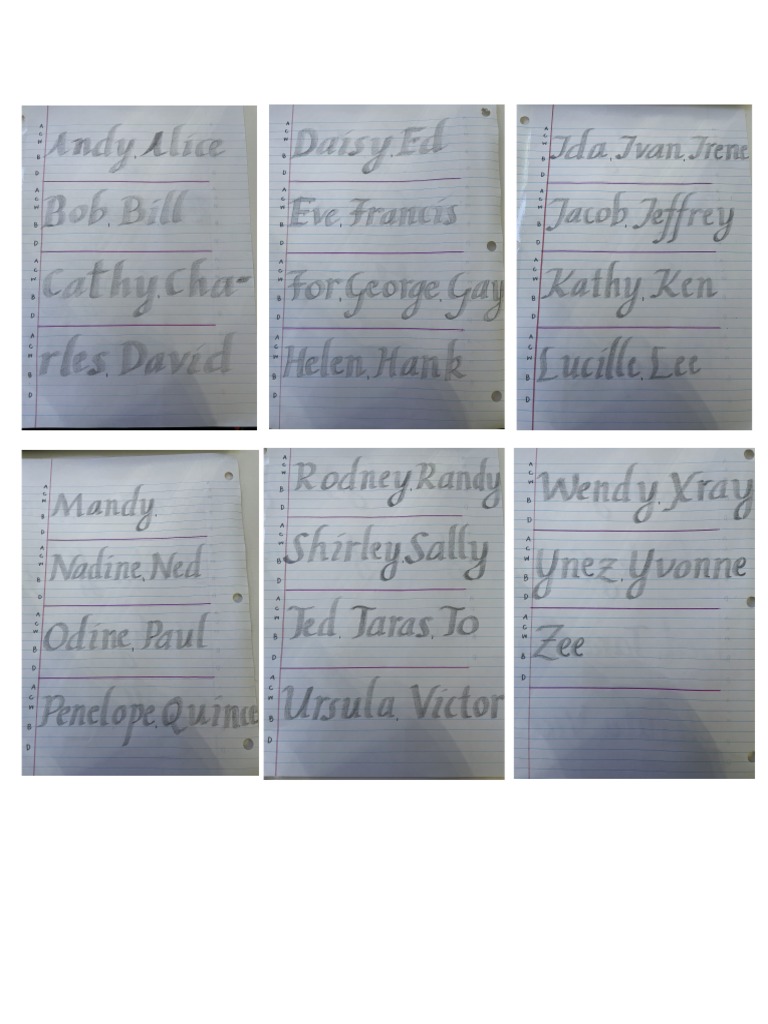 Andy, Alice
Bob, Bill
Cathy, Cha-
rles, David
Daisy, Ed
Eve, Francis
For, George, Gay
Helen, Hank
Ida, Ivan, Irene
Jacob, Jeffrey
Kathy, Ken
Lucille, Lee
Mandy,
Nadine, Ned
Odine, Paul
Penelope, Quince
Rodney, Randy
Shirley, Sally
Ted, Taras, To
Ursula, Victor
Wendy, Xray
Ynez, Yvonne
Zee